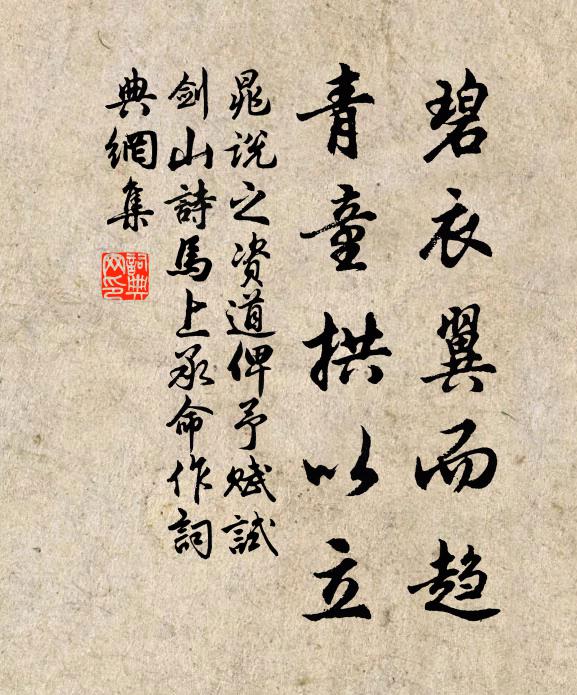 碧衣翼而趋
青童拱以立
晁说之资道俾予赋試
剑山詩馬上承命作詞
典網集
詞典網印